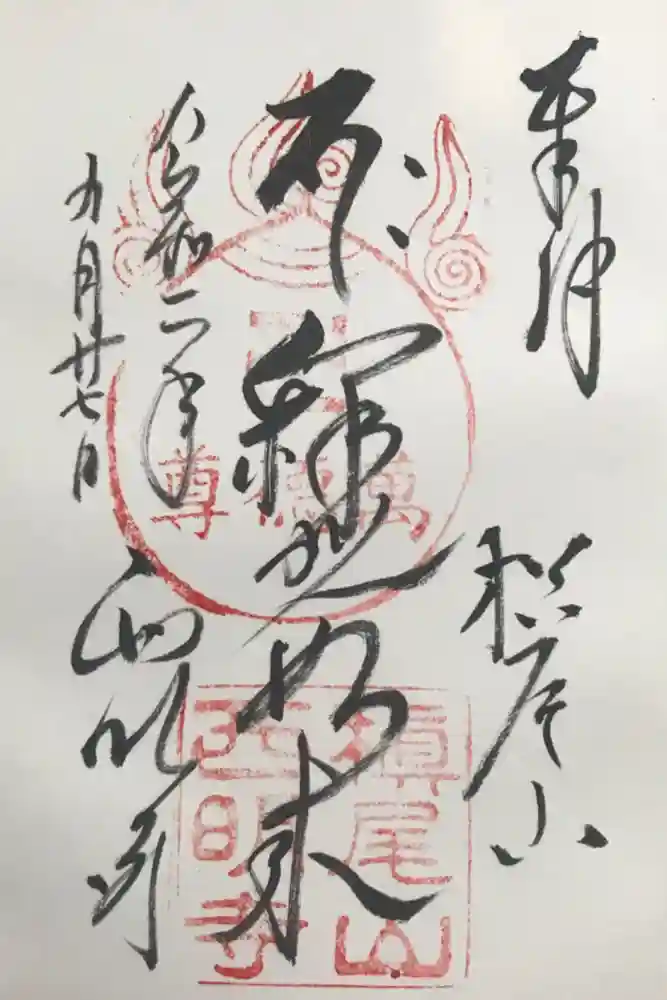 奉拝
槇尾山
釈迦如来
令和二年
九月廿七日
西明寺
萬德尊
槇尾山
西明寺